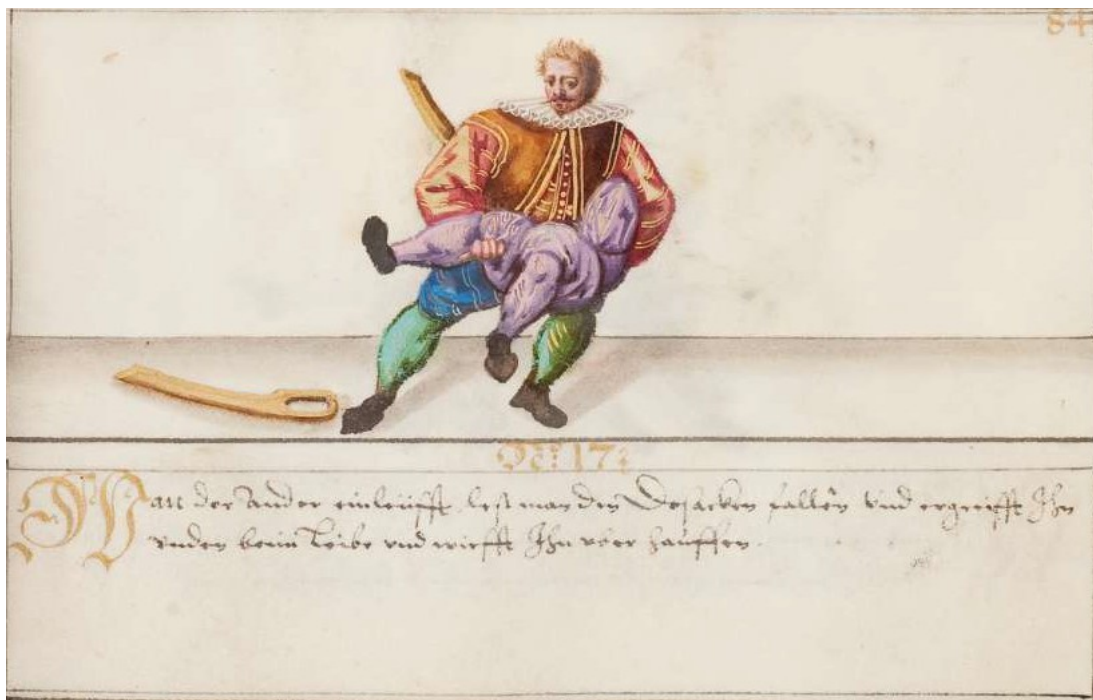 84
No: 17:
Wan der Ander einleüfft lest man den Desacken fallen vnd ergreifft Ihn
vnden beim Leibe vnd wirfft Ihn vber hauffen.